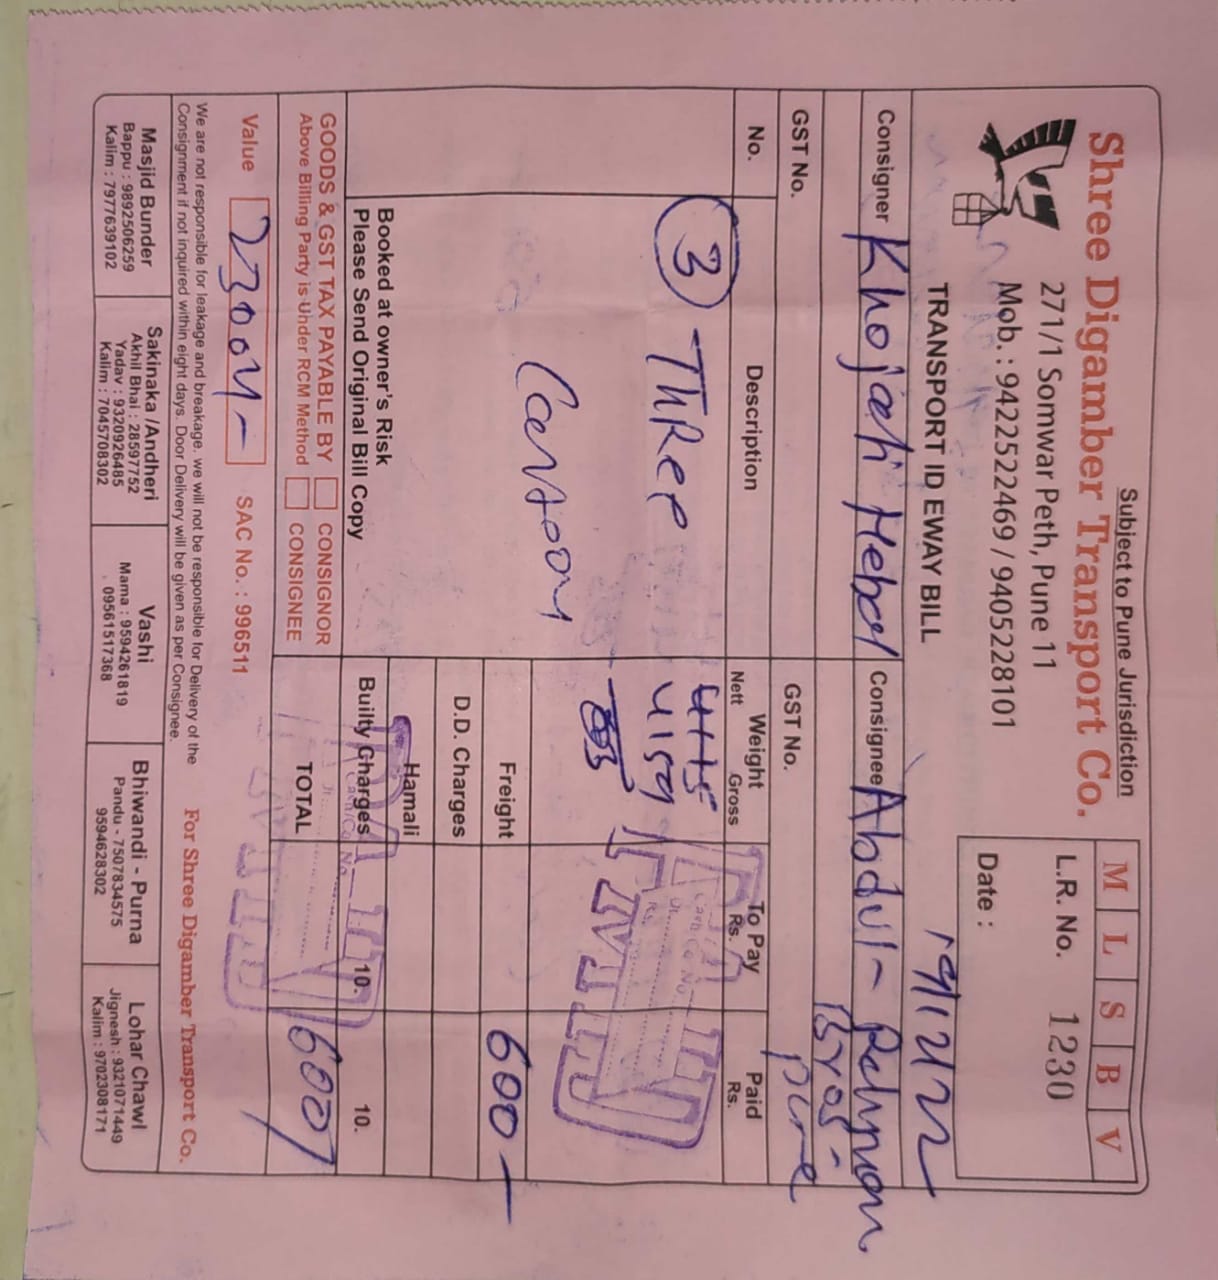 Subject to Pune Jurisdiction
Shree Digamber Transport Co.
271/1 Somwar Peth, Pune 11
Mob. : 9422522469 / 9405228101
TRANSPORT ID EWAY BILL
M L S B V
L.R. No. 1230
Date :
Consigner Khojati Hebal
Consignee Abdul - Rahman
Bros -
GST No.
GST No. Pune
No. Description Weight To Pay Rs. Paid Rs.
Nett Gross
3 - THREE
Cartoon
Freight 600 -
D.D. Charges
Hamali
Builty Charges 10. 10.
TOTAL 600/
Booked at owner's Risk
Please Send Original Bill Copy
GOODS & GST TAX PAYABLE BY CONSIGNOR
Above Billing Party is Under RCM Method CONSIGNEE
Value SAC No. : 996511
We are not responsible for leakage and breakage. we will not be responsible for Delivery of the
Consignment if not inquired within eight days. Door Delivery will be given as per Consignee.
For Shree Digamber Transport Co.
Masjid Bunder
Bappu : 9892506259
Kalim : 7977639102
Sakinaka /Andheri
Akhil Bhai : 28597752
Yadav : 9320926485
Kalim : 7045708302
Vashi
Mama : 9594261819
09561517368
Bhiwandi - Purna
Pandu - 7507834575
9594628302
Lohar Chawl
Jignesh : 9321071449
Kalim : 9702308171